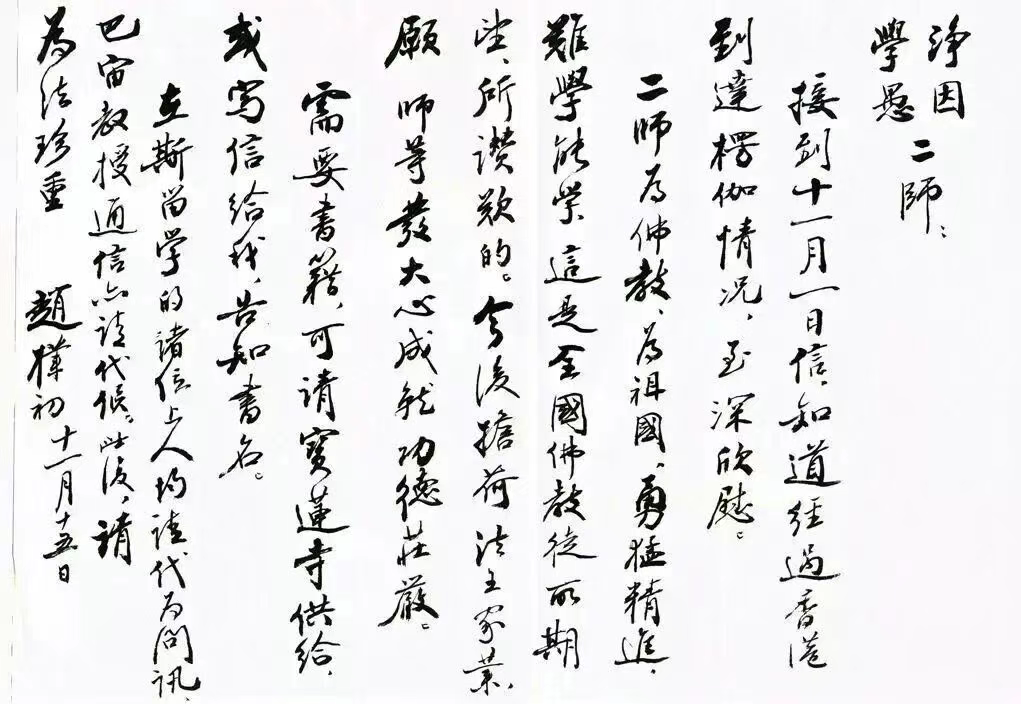 淨因
學愚 二師：
接到十一月一日信，知道经過香港
到達楞伽情况，至深欣慰。
二師為佛教、為祖國，勇猛精進，
難學能學，這是全國佛教徒所期
望、所讚歎的。今後擔荷法王家業，
願 師等發大心成就功德莊嚴。
需要書籍，可請寶蓮寺供給，
或寫信給我，告知書名。
在斯留学的諸位上人均請代为問訊，
巴宙教授通信亦請代候。此復，請
為法珍重 趙樸初 十一月十五日